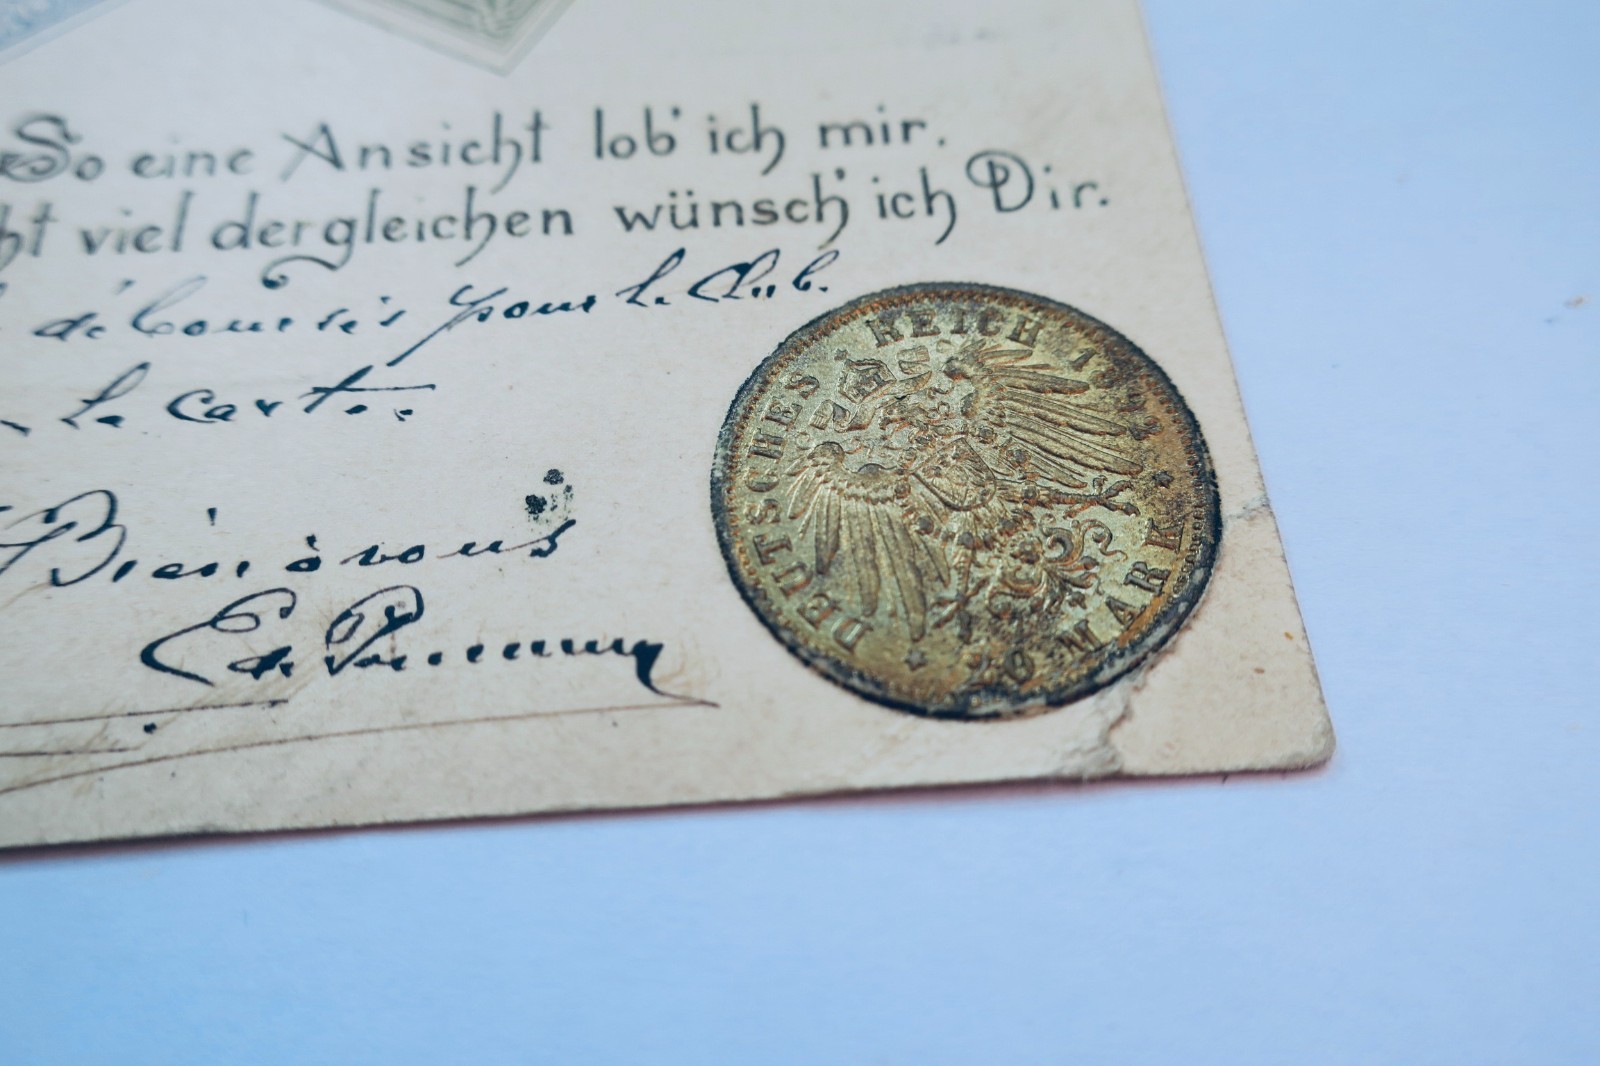 So eine Ansicht lob' ich mir.
cht viel dergleichen wünsch' ich Dir.
pour le Club.
la carte.
Bien à vous
DEUTSCHES REICH
MARK